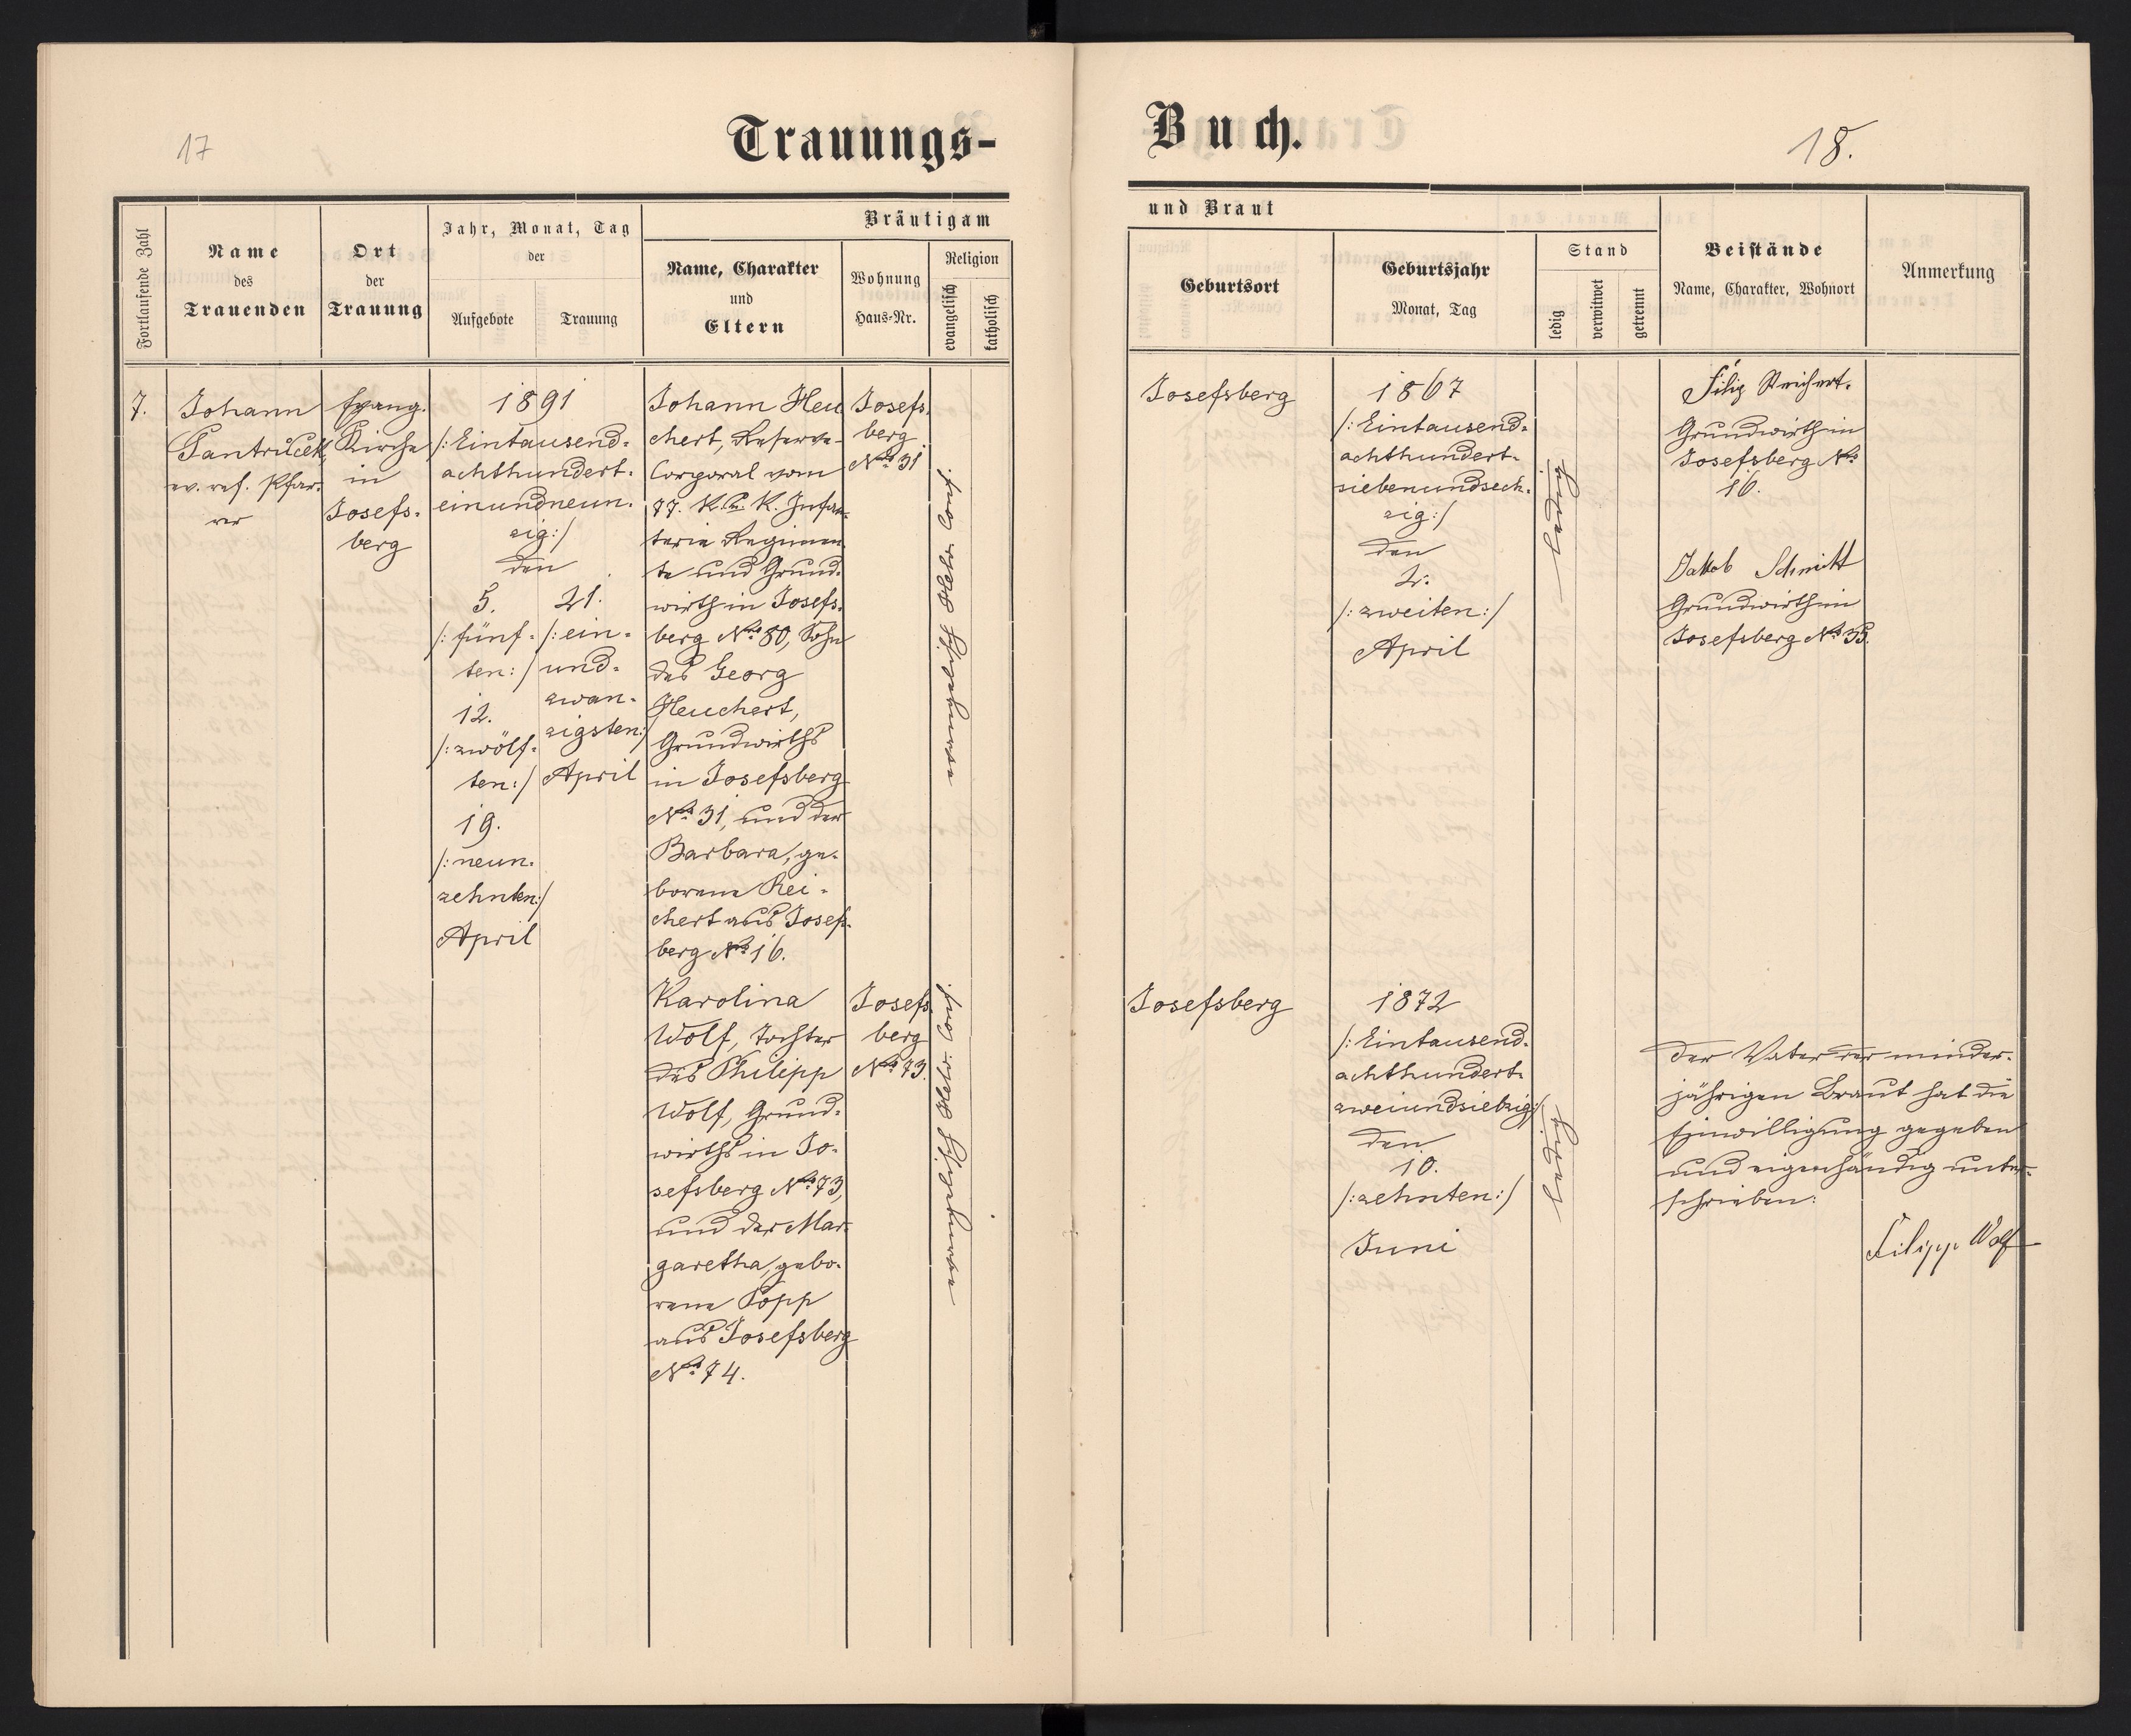 17
Trauungs-
Fortlaufende Zahl
Name
des
Trauenden
Ort
der
Trauung
Jahr, Monat, Tag
der
Aufgebote
Trauung
Bräutigam
Name, Charakter
und
Eltern
Wohnung
Haus-Nr.
Religion
evangelisch
katholisch
7.
Johann
ev. ref. Pfar-
rer
Evang.
Kirche
in
Josefs-
berg
1891
/: Eintausend-
achthundert-
einundneun-
zig :/
den
5.
/: fünf-
ten :/
12.
/: zwölf-
ten :/
19.
/: neun-
zehnten :/
April
21.
/: ein-
und-
zwan-
zigsten :/
April
Johann Heu
chert, Reserve-
Corporal vom
77. K. u. K. Infan-
terie Regimen-
te und Grund-
wirth in Josefs-
berg No 80, Sohn
des Georg
Heuchert,
Grundwirths
in Josefsberg
No 31, und der
Barbara, ge-
borene Rei-
chert aus Josefs-
berg No 16.
Josefs-
berg
No 31
evangelisch Helv. Conf.
Karolina
Wolf, Tochter
des Philipp
Wolf, Grund-
wirths in Jo-
sefsberg No 73,
und der Mar-
garetha, gebo-
rene Popp
aus Josefsberg
No 74.
Josefs-
berg
No 73.
evangelisch Helv. Conf.
Buch.
18.
und Braut
Geburtsort
Geburtsjahr
Monat, Tag
Stand
ledig
verwitwet
getrennt
Beistände
Name, Charakter, Wohnort
Anmerkung
Josefsberg
1867
/: Eintausend-
achthundert-
siebenundsech-
zig :/
den
2.
/: zweiten :/
April
ledig
Filip Reichert.
Grundwirth in
Josefsberg No
16.
Jakob Schmitt
Grundwirth in
Josefsberg No 35.
Josefsberg
1872
/: Eintausend-
achthundert-
zweiundsiebzig :/
den
10.
/: zehnten :/
Juni
ledig
Der Vater der minder-
jährigen Braut hat die
Einwilligung gegeben
und eigenhändig unter-
schrieben:
Filipp Wolf